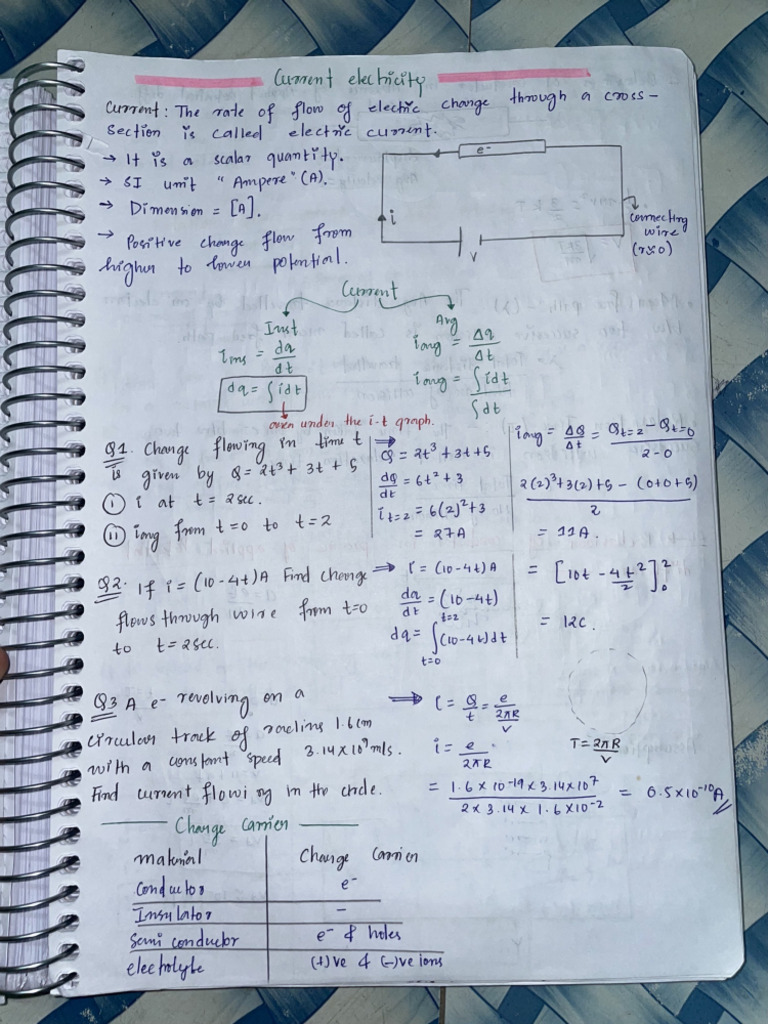 Current electricity
Current: The rate of flow of electric charge through a cross-
section is called electric current.
→ It is a scalar quantity.
→ SI unit "Ampere" (A).
→ Dimension = [A].
→ Positive charge flow from
higher to lower potential.
e-
i
V
connecting
wire
(r≈0)
Current
Inst
i_ins = dq/dt
dq = ∫idt
area under the i-t graph.
Avg
i_avg = Δq/Δt
i_avg = ∫idt/∫dt
Q1. Charge flowing in time t
is given by Q = 2t³ + 3t + 5
(i) i at t = 2sec.
(ii) i_avg from t=0 to t=2
⇒
Q = 2t³ + 3t + 5
dQ/dt = 6t² + 3
i_t=2 = 6(2)² + 3
= 27A
i_avg = ΔQ/Δt = (Q_t=2 - Q_t=0)/(2-0)
(2(2)³ + 3(2) + 5 - (0+0+5))/2
= 11A.
Q2. If i = (10-4t)A Find charge
flows through wire from t=0
to t = 2sec.
⇒ i = (10-4t)A
dq/dt = (10-4t)
dq = ∫_{t=0}^{t=2} (10-4t)dt
= [10t - 4t²/2]₀²
= 12C.
Q3 A e- revolving on a
circular track of radius 1.6cm
with a constant speed 3.14×10⁷m/s.
Find current flowing in the circle.
⇒ i = Q/t = e/(2πR/V)
i = e/2πR
= (1.6 × 10⁻¹⁹ × 3.14×10⁷)/(2 × 3.14 × 1.6×10⁻²) = 0.5×10⁻¹⁰A
T = 2πR/V
Charge Carrier
material Charge Carrier
Conductor e-
Insulator -
Semi conductor e- & holes
electrolyte (+)ve & (-)ve ions